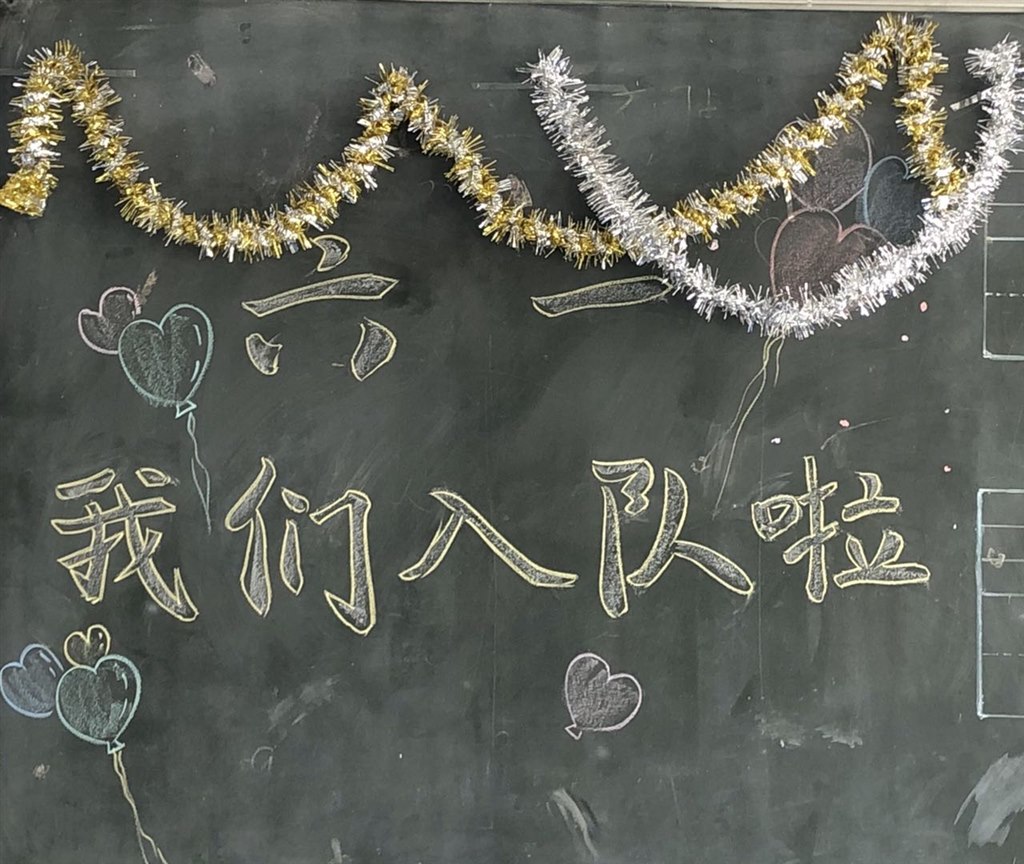 六一
我们入队啦